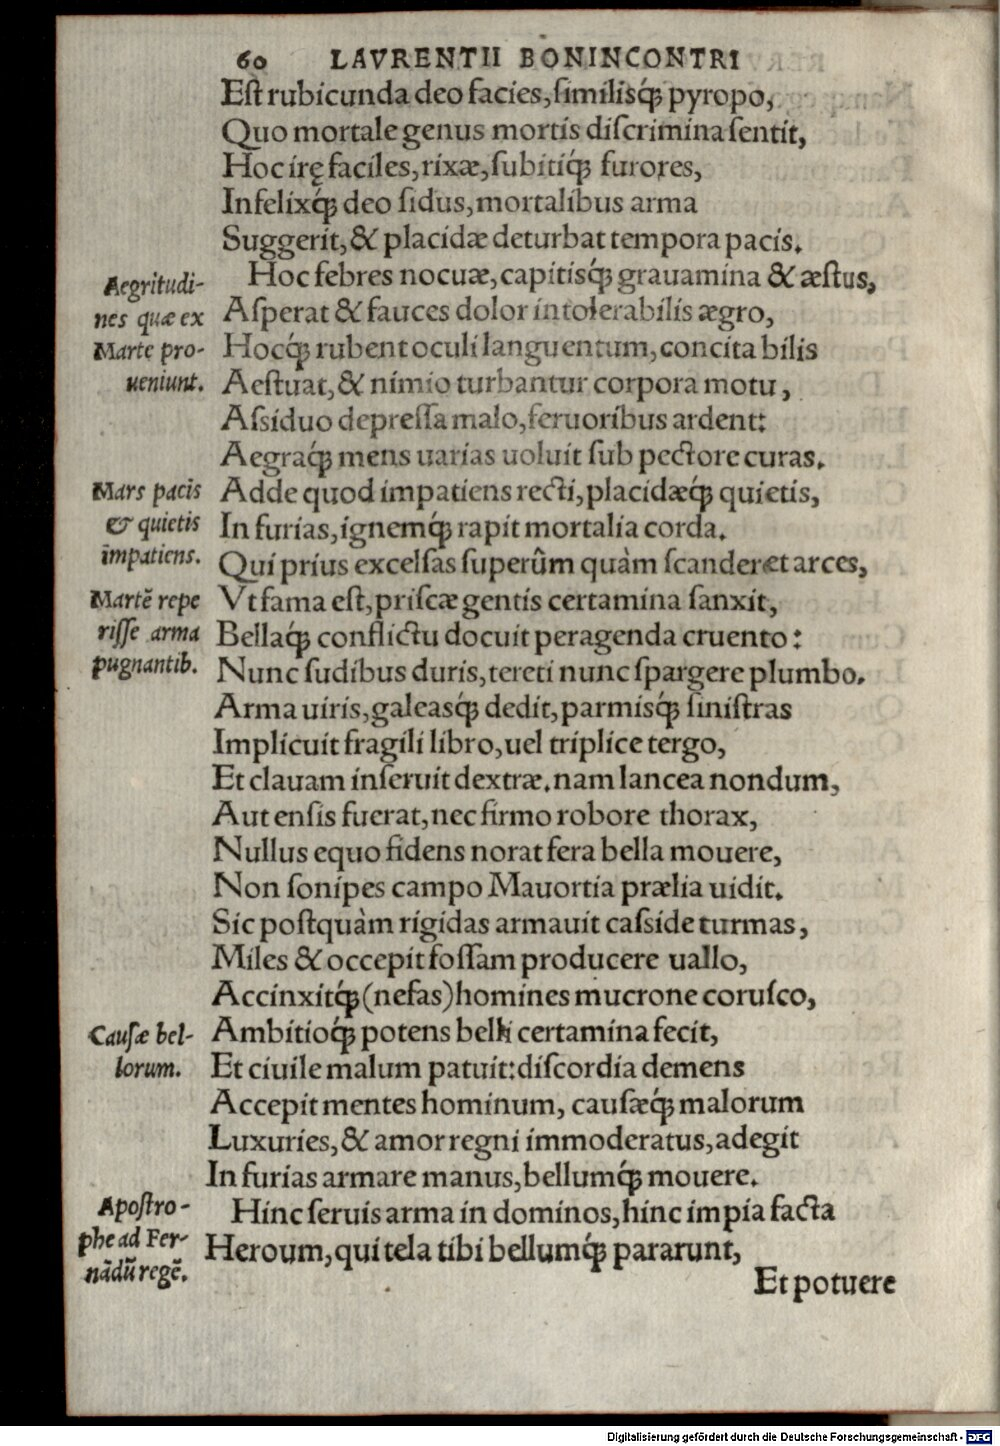 60 LAVRENTII BONINCONTRI
Est rubicunda deo facies, similisq́ꝫ pyropo,
Quo mortale genus mortis discrimina sentit,
Hoc irę faciles, rixæ, subitiq́ꝫ furores,
Infelixq́ꝫ deo sidus, mortalibus arma
Suggerit, & placidæ deturbat tempora pacis.
Aegritudi-
nes quæ ex
Marte pro-
ueniunt.
Hoc febres nocuæ, capitisq́ꝫ grauamina & æstus,
Asperat & fauces dolor intolerabilis ægro,
Hocq́ꝫ rubent oculi languentum, concita bilis
Aestuat, & nimio turbantur corpora motu,
Assiduo depressa malo, feruoribus ardent:
Aegraq́ꝫ mens uarias uoluit sub pectore curas.
Mars pacis
& quietis
impatiens.
Adde quod impatiens recti, placidæq́ꝫ quietis,
In furias, ignemq́ꝫ rapit mortalia corda.
Qui prius excelsas superûm quàm scanderet arces,
Martẽ repe
risse arma
pugnantib.
Vt fama est, priscæ gentis certamina sanxit,
Bellaq́ꝫ conflictu docuit peragenda cruento:
Nunc sudibus duris, tereti nunc spargere plumbo.
Arma uiris, galeasq́ꝫ dedit, parmisq́ꝫ sinistras
Implicuit fragili libro, uel triplice tergo,
Et clauam inseruit dextræ. nam lancea nondum,
Aut ensis fuerat, nec firmo robore thorax,
Nullus equo fidens norat fera bella mouere,
Non sonipes campo Mauortia prælia uidit.
Sic postquàm rigidas armauit casside turmas,
Miles & occepit fossam producere uallo,
Accinxitq́ꝫ (nefas) homines mucrone corusco,
Causæ bel-
lorum.
Ambitioq́ꝫ potens belli certamina fecit,
Et ciuile malum patuit: discordia demens
Accepit mentes hominum, causæq́ꝫ malorum
Luxuries, & amor regni immoderatus, adegit
In furias armare manus, bellumq́ꝫ mouere.
Apostro-
phe ad Fer-
nãdũ regẽ.
Hinc seruis arma in dominos, hinc impia facta
Heroum, qui tela tibi bellumq́ꝫ pararunt,
Et potuere
Digitalisierung gefördert durch die Deutsche Forschungsgemeinschaft - DFG